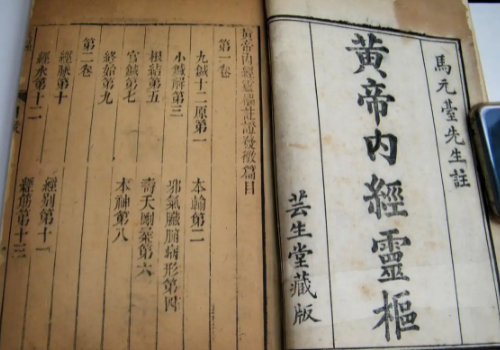 馬元臺先生註
黃帝內經靈樞
芸生堂藏版
黃帝內經靈樞註證發微篇目
第一卷
九鍼十二原第一 本輸第二
小鍼解第三 邪氣臟腑病形第四
根結第五 壽夭剛柔第六
官鍼第七 本神第八
終始第九
第二卷
經脉第十 經別第十一
經水第十二 經筋第十三